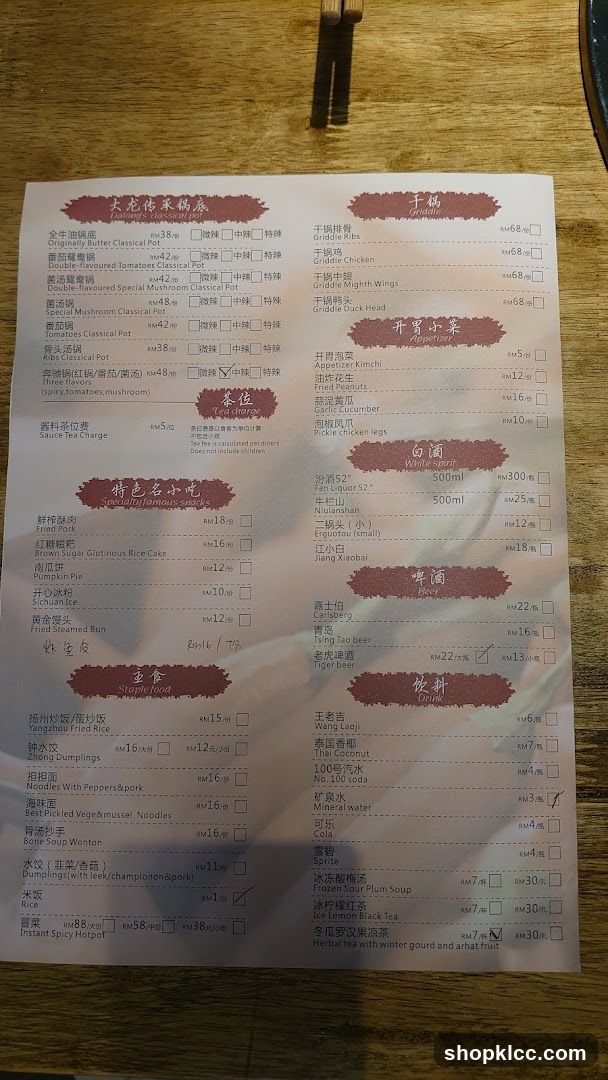 大龙传承锅底
Dalong's classical pot
全牛油锅底 RM38/份 微辣 中辣 特辣
Originally Butter Classical Pot
番茄鸳鸯锅 RM42/份 微辣 中辣 特辣
Double-flavoured Tomatoes Classical Pot
菌汤鸳鸯锅 RM42/份 微辣 中辣 特辣
Double-flavoured Special Mushroom Classical Pot
菌汤锅 RM48/份 微辣 中辣 特辣
Special Mushroom Classical Pot
番茄锅 RM42/份 微辣 中辣 特辣
Tomatoes Classical Pot
骨头汤锅 RM38/份 微辣 中辣 特辣
Ribs Classical Pot
奔驰锅(红锅/番茄/菌汤) RM48/份 微辣 中辣 特辣
Three flavors
(spicy,tomatoes,mushroom)
茶位
Tea charge
酱料茶位费 RM5/位
Sauce Tea Charge
茶位费是以食客为单位计算
不包含小孩
Tea fee is calculated per diners
Does not include children
特色名小吃
Specialty/famous snacks
鲜榨酥肉 RM18/份
Fried Pork
红糖糍粑 RM16/份
Brown Sugar Glutinous Rice Cake
南瓜饼 RM12/份
Pumpkin Pie
开心冰粉 RM10/份
Sichuan Ice
黄金馒头 RM12/份
Fried Steamed Bun
炸鱼皮 RM16/份
主食
Staple food
扬州炒饭/蛋炒饭 RM15/份
Yangzhou Fried Rice
钟水饺 RM16/大份 RM12元/小份
Zhong Dumplings
担担面 RM16/份
Noodles With Peppers&pork
海味面 RM16/份
Best Pickled Vege&mussel Noodles
骨汤抄手 RM16/份
Bone Soup Wonton
水饺（韭菜/香菇） RM11/份
Dumplings(with leek/championon&pork)
米饭 RM1/份
Rice
冒菜 RM88/大份 RM58/中份 RM38元/小份
Instant Spicy Hotpot
干锅
Griddle
干锅排骨 RM68/份
Griddle Ribs
干锅鸡 RM68/份
Griddle Chicken
干锅中翅 RM68/份
Griddle Mighth Wings
干锅鸭头 RM68/份
Griddle Duck Head
开胃小菜
Appetizer
开胃泡菜 RM5/份
Appetizer Kimchi
油炸花生 RM12/份
Fried Peanuts
蒜泥黄瓜 RM16/份
Garlic Cucumber
泡椒凤爪 RM10/份
Pickle chicken legs
白酒
White spirit
汾酒52° 500ml RM300/瓶
Fen Liquor 52°
牛栏山 500ml RM25/瓶
Niulanshan
二锅头（小） RM12/瓶
Erguotou (small)
江小白 RM18/瓶
Jiang Xiaobai
啤酒
Beer
嘉士伯 RM22/瓶
Carlsberg
青岛 RM16/瓶
Tsing Tao beer
老虎啤酒 RM22/大瓶 RM13/小瓶
Tiger beer
饮料
Drink
王老吉 RM6/瓶
Wang Laoji
泰国香椰 RM7/瓶
Thai Coconut
100号汽水 RM4/瓶
No. 100 soda
矿泉水 RM3/瓶
Mineral water
可乐 RM4/瓶
Cola
雪碧 RM4/瓶
Sprite
冰冻酸梅汤 RM7/杯 RM30/扎
Frozen Sour Plum Soup
冰柠檬红茶 RM7/杯 RM30/扎
Ice Lemon Black Tea
冬瓜罗汉果凉茶 RM7/杯 RM30/扎
Herbal tea with winter gourd and arhat fruit
shopklcc.com